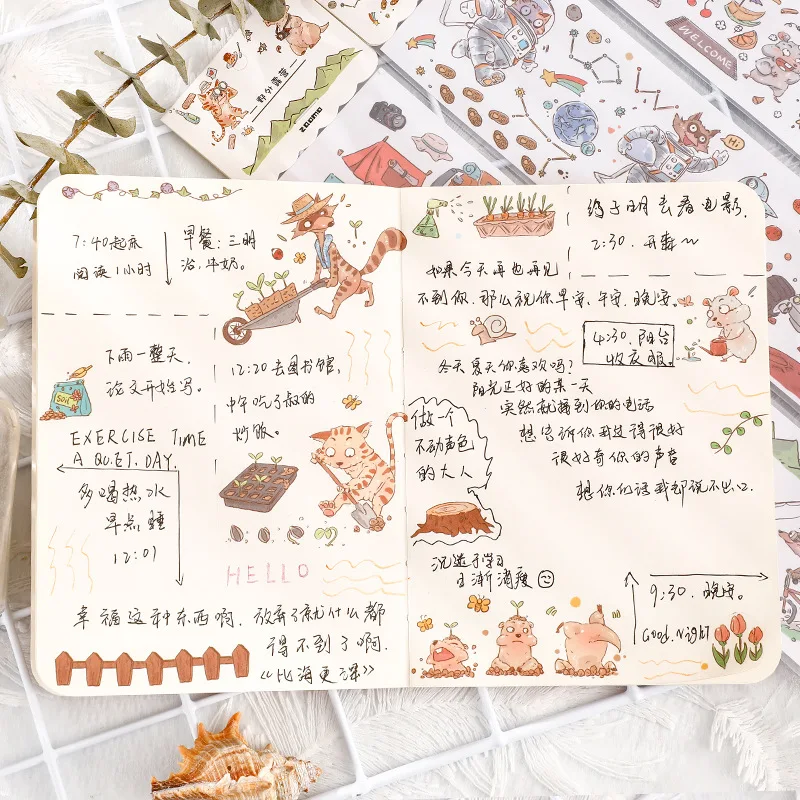 野外露营
zoomo
WELCOME
Hi
7:40起床
阅读1小时
早餐:三明
治,牛奶。
下雨一整天,
论文开始写。
Soil
EXERCISE TIME
A QUET.DAY.
多喝热水
早点睡
12:01
12:20去图书馆,
中午吃了叔的
炒饭。
HELLO
幸福这种东西啊.放弃了就什么都
得不到了啊.
《比海更深》
约于明去看电影.
2:30.开车~
如果今天再也再见
不到你.那么祝你早安,午安,晚安。
4:30.阳台
收衣服。
冬天夏天你喜欢吗?
阳光正好的某一天
突然就接到你的电话
想告诉你我过得很好
很好奇你的声音
想你的话我却说不出口.
做一个
不动声色
的大人
沉迷于学习
日渐消瘦
9:30.晚安。
Good.Night